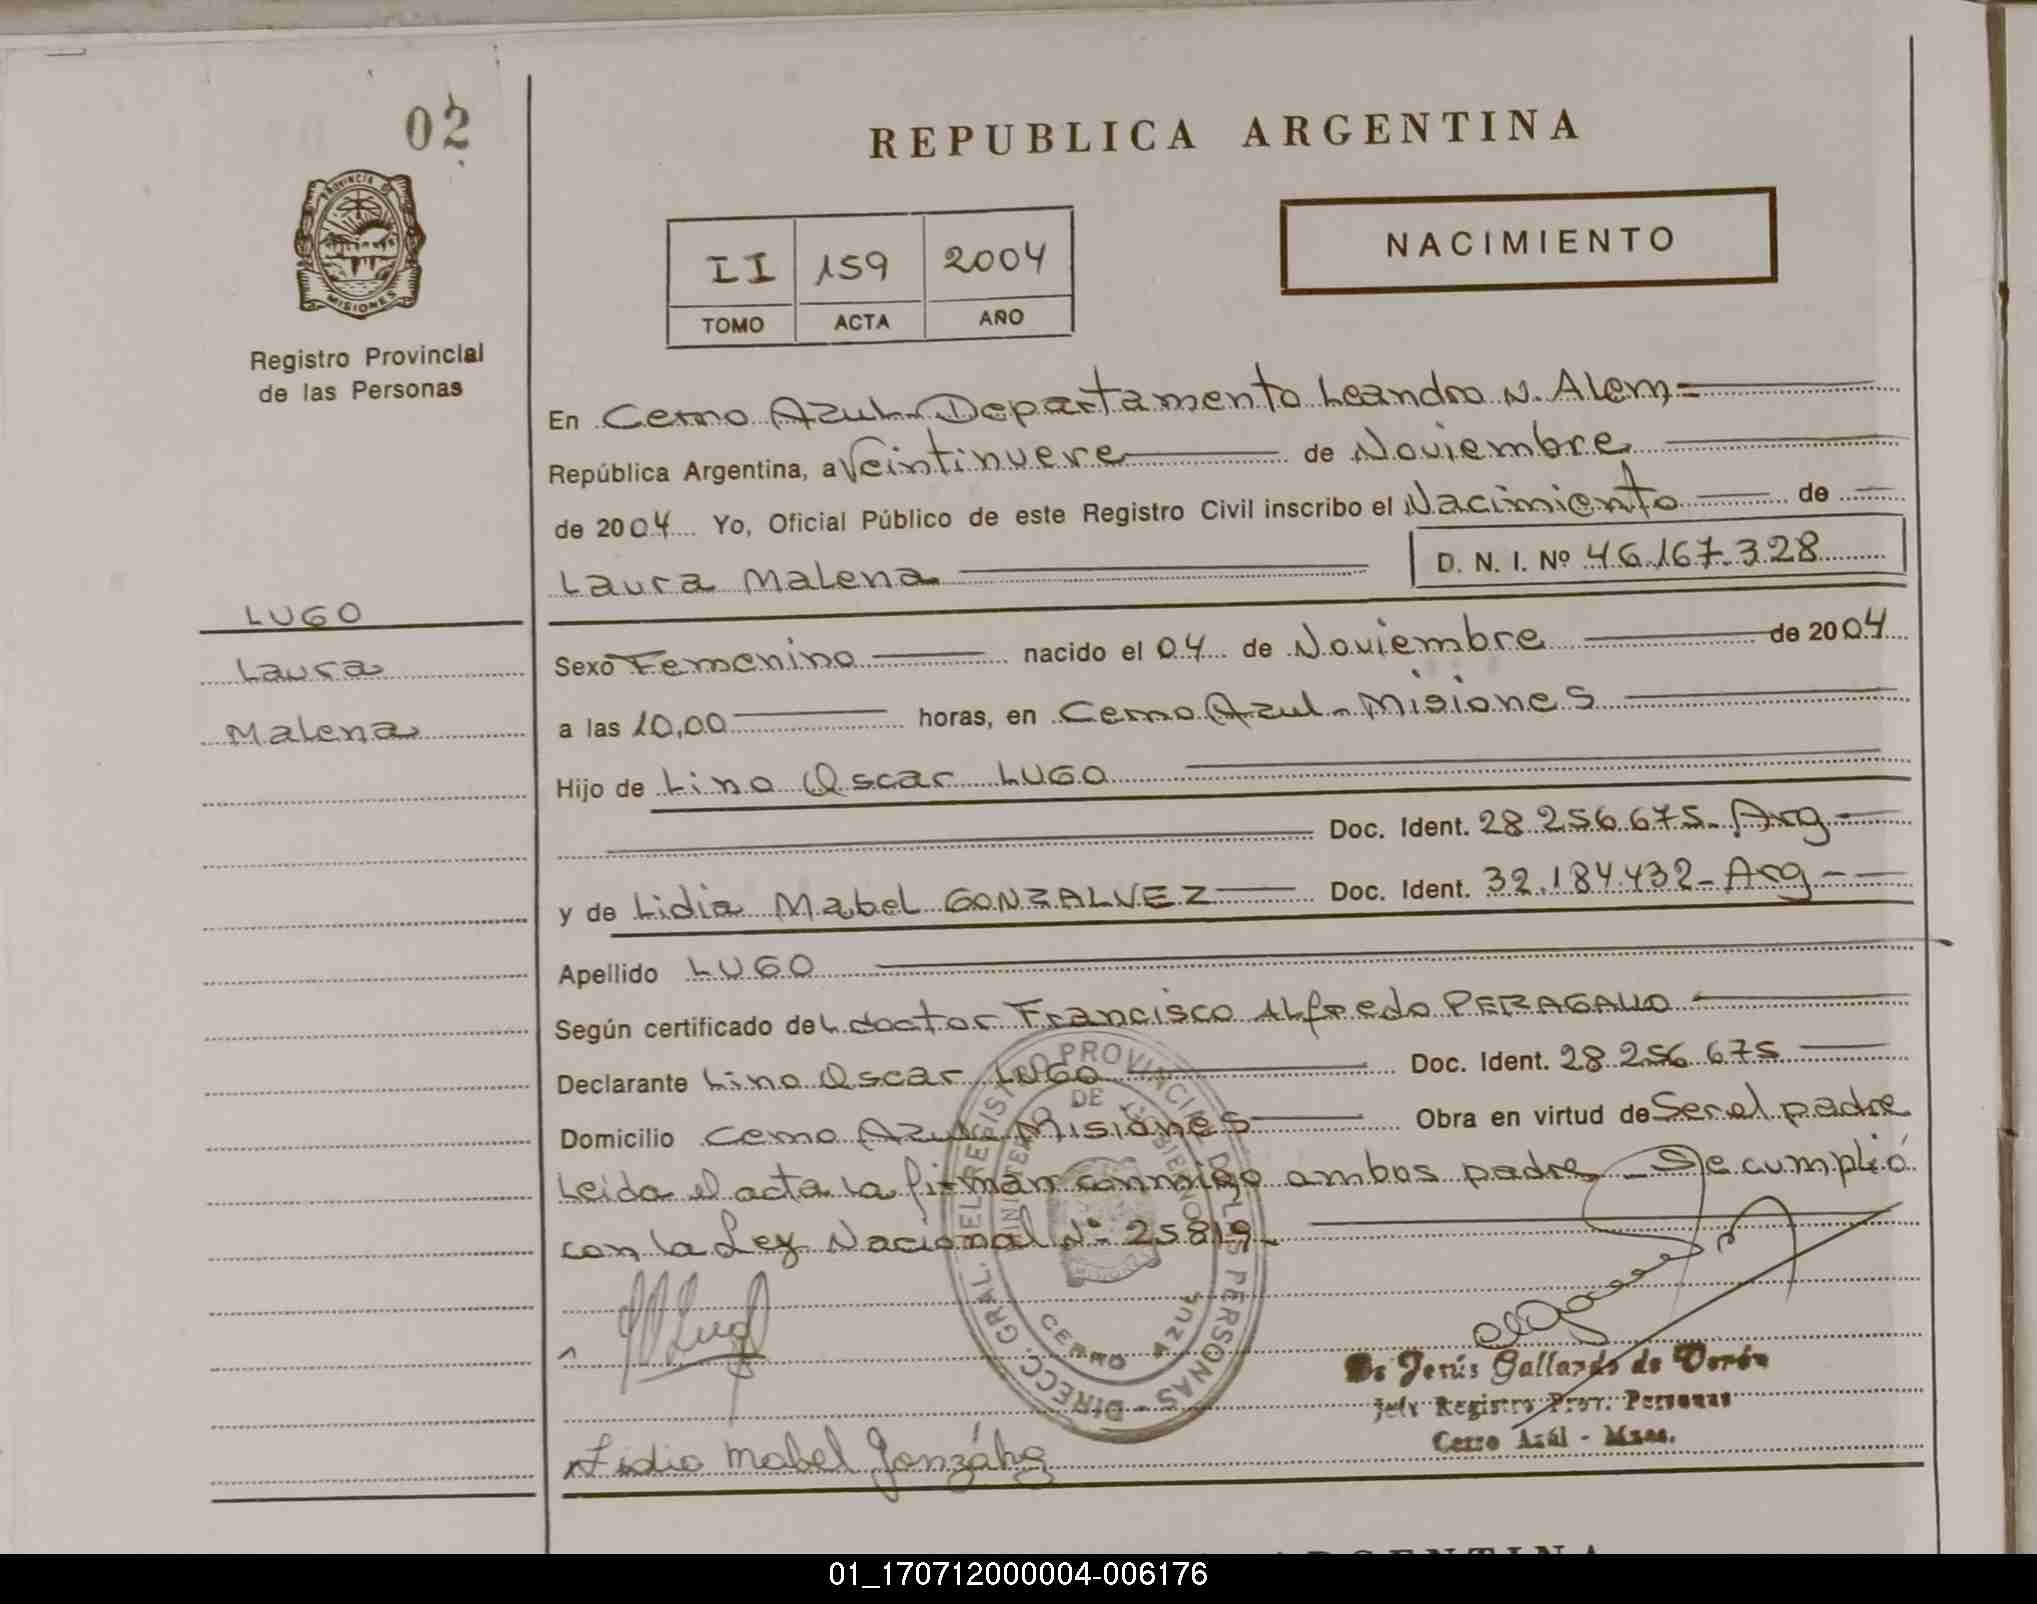 02
REPUBLICA ARGENTINA
PROVINCIA DE
MISIONES
Registro Provincial
de las Personas
II 159 2004
TOMO ACTA AÑO
NACIMIENTO
En Cerro Azul - Departamento Leandro N. Alem =
República Argentina, a Veintinueve de Noviembre
de 2004 Yo, Oficial Público de este Registro Civil inscribo el Nacimiento de
Laura Malena D. N. I. Nº 46.167.328
LUGO
Laura
Malena
Sexo Femenino nacido el 04 de Noviembre de 2004
a las 10,00 horas, en Cerro Azul - Misiones
Hijo de Lino Oscar LUGO
Doc. Ident. 28.256.675 - Arg
y de Lidia Mabel GONZALVEZ Doc. Ident. 32.184.432 - Arg
Apellido LUGO
Según certificado del doctor Francisco Alfredo PERAGALLO
Declarante Lino Oscar LUGO Doc. Ident. 28.256.675
Domicilio Cerro Azul - Misiones Obra en virtud de Ser el padre
Leida el acta la firman conmigo ambos padres - Se cumplió
con la Ley Nacional Nº 25819 -
DIRECC. GRAL. DEL REGISTRO PROVINCIAL DE LAS PERSONAS
MINISTERIO DE GOBIERNO
CERRO AZUL
Lugo
Jesús Gallardo de Verón
Jefe Registro Prov. Personas
Cerro Azúl - Mnes.
Lidia Mabel Gonzálvez
ARGENTINA
01_170712000004-006176